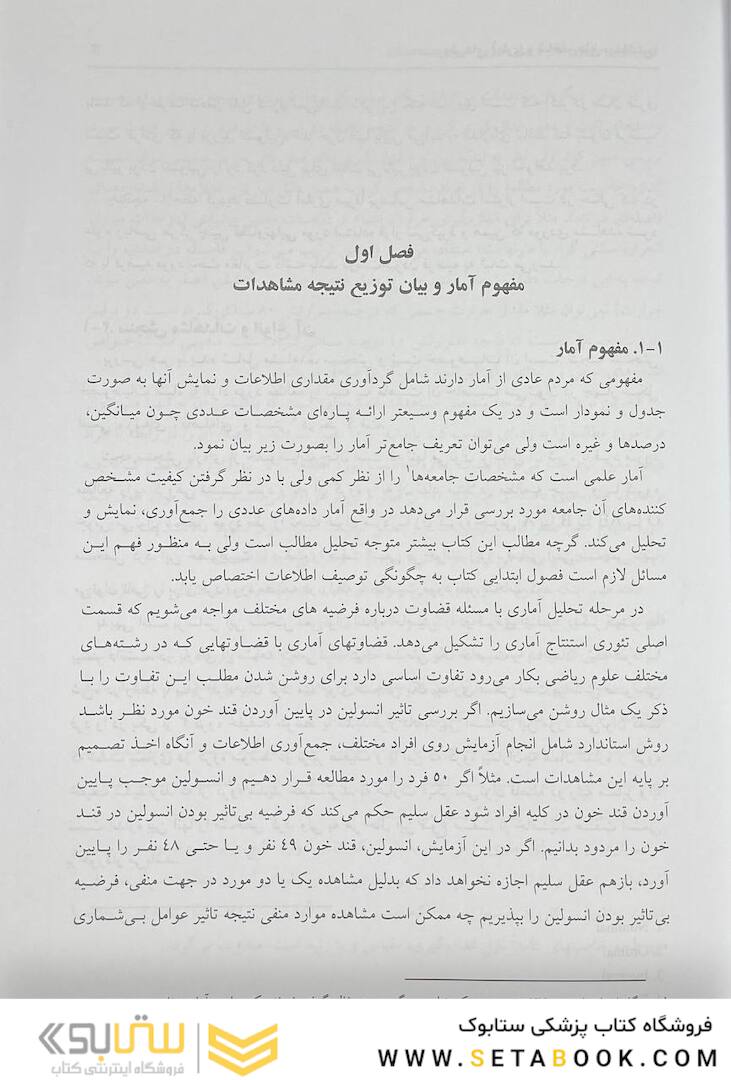 فصل اول
مفهوم آمار و بیان توزیع نتیجه مشاهدات
۱-۱. مفهوم آمار
مفهومی که مردم عادی از آمار دارند شامل گردآوری مقداری اطلاعات و نمایش آنها به صورت
جدول و نمودار است و در یک مفهوم وسیعتر ارائه پاره‌ای مشخصات عددی چون میانگین،
درصدها و غیره است ولی می‌توان تعریف جامع‌تر آمار را بصورت زیر بیان نمود.
آمار علمی است که مشخصات جامعه‌ها۱ را از نظر کمی ولی با در نظر گرفتن کیفیت مشخص
کننده‌های آن جامعه مورد بررسی قرار می‌دهد در واقع آمار داده‌های عددی را جمع‌آوری، نمایش و
تحلیل می‌کند. گرچه مطالب این کتاب بیشتر متوجه تحلیل مطالب است ولی به منظور فهم این
مسائل لازم است فصول ابتدایی کتاب به چگونگی توصیف اطلاعات اختصاص یابد.
در مرحله تحلیل آماری با مسئله قضاوت درباره فرضیه های مختلف مواجه می‌شویم که قسمت
اصلی تئوری استنتاج آماری را تشکیل می‌دهد. قضاوتهای آماری با قضاوتهایی که در رشته‌های
مختلف علوم ریاضی بکار می‌رود تفاوت اساسی دارد برای روشن شدن مطلب این تفاوت را با
ذکر یک مثال روشن می‌سازیم. اگر بررسی تاثیر انسولین در پایین آوردن قند خون مورد نظر باشد
روش استاندارد شامل انجام آزمایش روی افراد مختلف، جمع‌آوری اطلاعات و آنگاه اخذ تصمیم
بر پایه این مشاهدات است. مثلاً اگر ۵۰ فرد را مورد مطالعه قرار دهیم و انسولین موجب پایین
آوردن قند خون در کلیه افراد شود عقل سلیم حکم می‌کند که فرضیه بی‌تاثیر بودن انسولین در قند
خون را مردود بدانیم. اگر در این آزمایش، انسولین، قند خون ۴۹ نفر و یا حتی ۴۸ نفر را پایین
آورد، بازهم عقل سلیم اجازه نخواهد داد که بدلیل مشاهده یک یا دو مورد در جهت منفی، فرضیه
بی‌تاثیر بودن انسولین را بپذیریم چه ممکن است مشاهده موارد منفی نتیجه تاثیر عوامل بی‌شماری
فروشگاه کتاب پزشکی ستابوک
WWW.SETABOOK.COM
ستابوک
فروشگاه اینترنتی کتاب